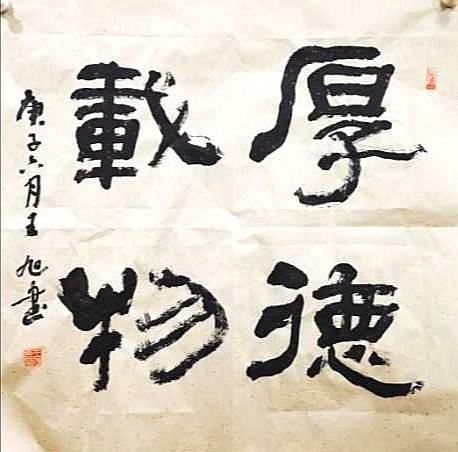 厚德
載物
庚子六月王旭書